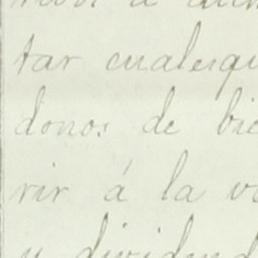 tar cualesqu
donos de bie
rir á la vo
y dividend